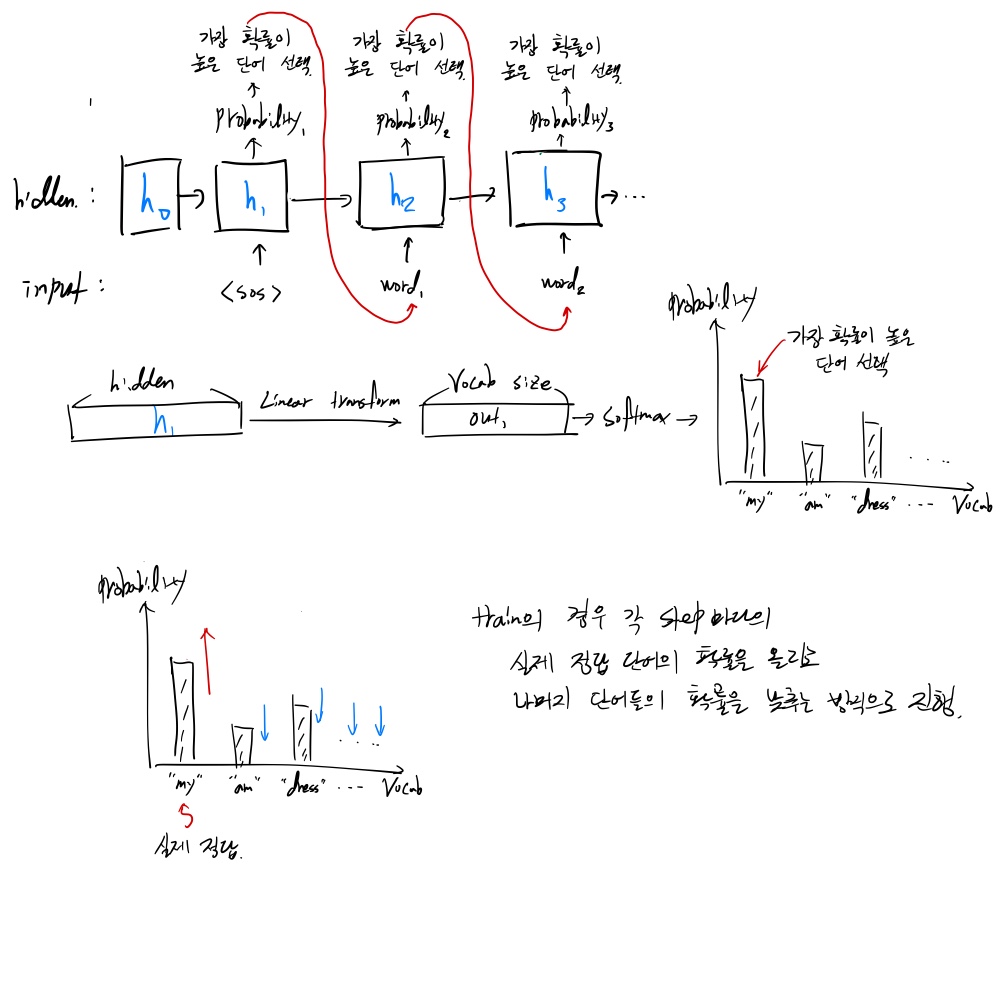 가장 확률이
높은 단어 선택.
가장 확률이
높은 단어 선택.
가장 확률이
높은 단어 선택.
probability₁
probability₂
probability₃
hidden. :
h₀
h₁
h₂
h₃
...
input :
<sos>
word₁
word₂
probability
가장 확률이 높은
단어 선택
hidden
h₁
Linear transform
Vocab size
out₁
softmax
....
"my"
"am"
"dress"
...
Vocab
probability
....
"my"
"am"
"dress"
...
Vocab
실제 정답.
train의 경우 각 step마다의
실제 정답 단어의 확률을 올리고
나머지 단어들의 확률을 낮추는 방식으로 진행.